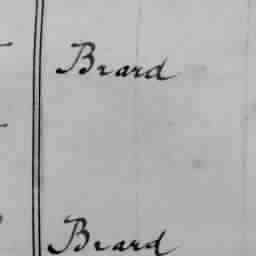 Beard
Beard